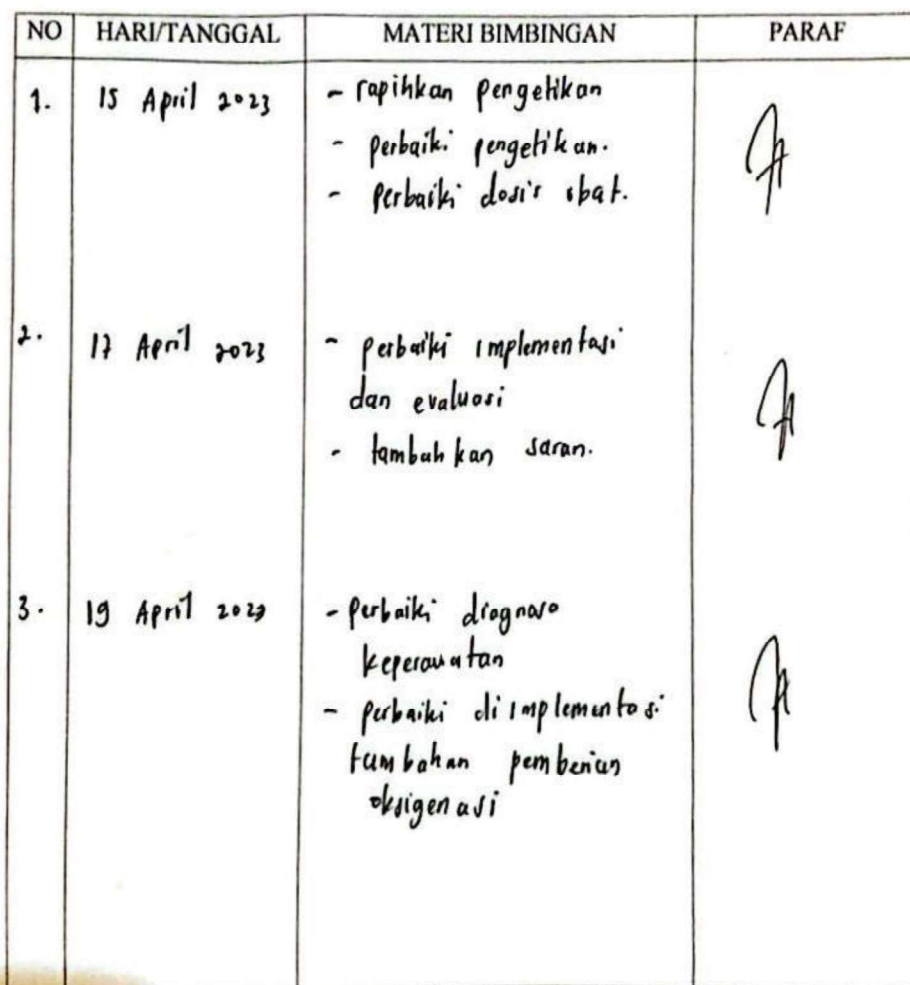 NO HARI/TANGGAL MATERI BIMBINGAN PARAF
1. 15 April 2023 - rapihkan pengetikan
- perbaiki pengetikan.
- perbaiki dosis obat.
2. 17 April 2023 - perbaiki implementasi
dan evaluasi
- tambahkan saran.
3. 19 April 2023 - perbaiki diagnosa
keperawatan
- perbaiki di implementasi
tambahan pemberian
oksigenasi